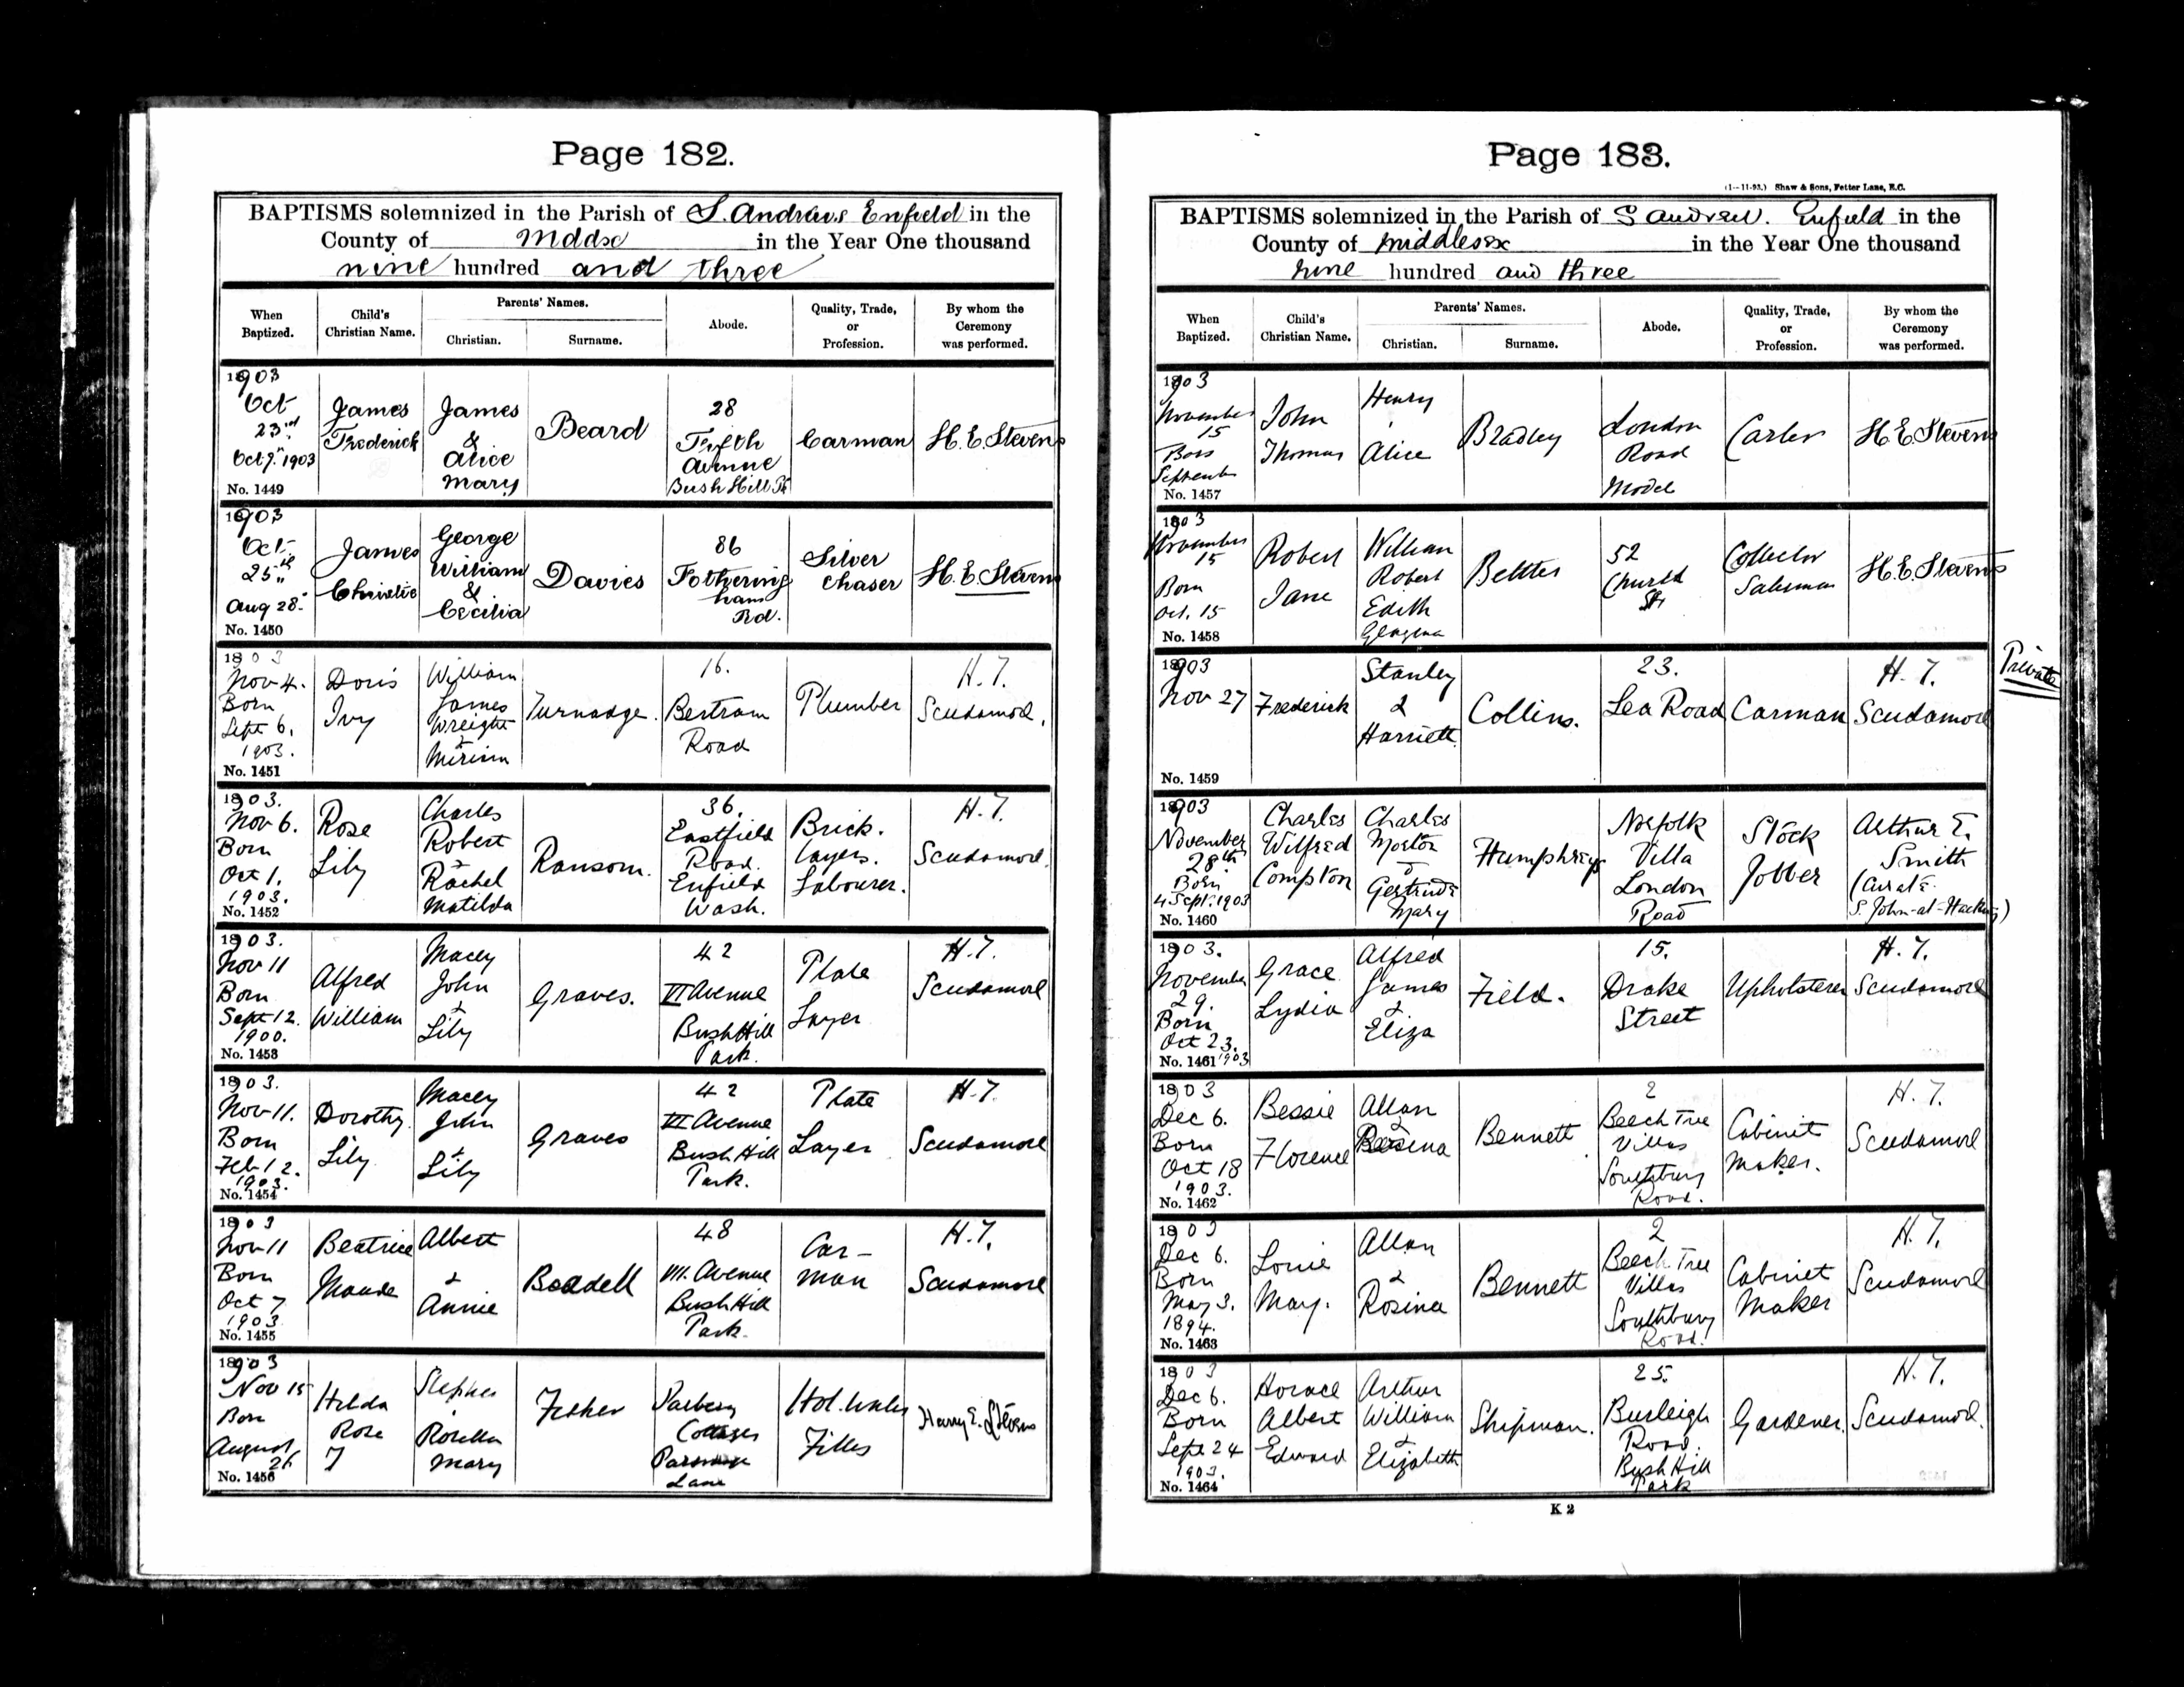 Page 182.
BAPTISMS solemnized in the Parish of S. Andrews Enfield in the
County of Mddx in the Year One thousand
nine hundred and three
When Baptized.
Child's Christian Name.
Parents' Names.
Christian.
Surname.
Abode.
Quality, Trade, or Profession.
By whom the Ceremony was performed.
1903
Oct
23rd
Oct 9. 1903
No. 1449
James
Frederick
James
&
Alice
Mary
Beard
28
Fifth
Avenue
Bush Hill Pk
Carman
H. E. Stevens
1903
Oct
25th
Aug 28.
No. 1450
James
Christie
George
William
&
Cecilia
Davies
86
Fothering
ham
Rd.
Silver
Chaser
H. E. Stevens
1903
Nov 4.
Born
Sept 6.
1903.
No. 1451
Doris
Ivy
William
James
Wreight
&
Miriam
Turnadge.
16.
Bertram
Road
Plumber
H. T.
Scudamore.
1903.
Nov 6.
Born
Oct 1.
1903.
No. 1452
Rose
Lily
Charles
Robert
&
Rachel
Matilda
Ransom.
36.
Eastfield
Road.
Enfield
Wash.
Brick.
layers.
Labourer.
H. T.
Scudamore.
1903.
Nov 11
Born
Sept 12.
1900.
No. 1453
Alfred
William
Macey
John
&
Lily
Graves.
42
VI Avenue
Bush Hill
Park.
Plate
Layer
H. T.
Scudamore
1903.
Nov 11.
Born
Feb 12.
1903.
No. 1454
Dorothy
Lily
Macey
John
&
Lily
Graves
42
VI Avenue
Bush Hill
Park.
Plate
Layer
H. T.
Scudamore
1903
Nov 11
Born
Oct 7
1903
No. 1455
Beatrice
Maude
Albert
&
Annie
Beadell
48
VII. Avenue
Bush Hill
Park.
Car-
man
H. T.
Scudamore
1903
Nov 15
Born
August
26
No. 1456
Hilda
Rose
Stephen
Rosella
Mary
Cottages
Parsonage
Lane
Harry E. Stevens
Page 183.
(1—11-93.) Shaw & Sons, Fetter Lane, E.C.
BAPTISMS solemnized in the Parish of S Andrew. Enfield in the
County of Middlesex in the Year One thousand
nine hundred and three
When Baptized.
Child's Christian Name.
Parents' Names.
Christian.
Surname.
Abode.
Quality, Trade, or Profession.
By whom the Ceremony was performed.
1903
November
15
Born
September
No. 1457
John
Thomas
Henry
Alice
Bradley
London
Road
Model
H. E. Stevens
1903
November
15
Born
Oct. 15
No. 1458
Robert
Jane
William
Robert
Edith
52
Church
St
Collector
Salesman
H. E. Stevens
1903
Nov 27
No. 1459
Frederick
Stanley
&
Harriett
Collins.
23.
Lea Road
Carman
H. T.
Scudamore
Private
1903
November
28th
Born
4. Sept. 1903
No. 1460
Charles
Wilfred
Compton
Charles
Morton
&
Gertrude
Mary
Humphreys
Norfolk
Villa
London
Road
Stock
Jobber
Arthur E.
Smith
(Curate
S. John-at-Hackney)
1903.
November
29.
Born
Oct 23.
No. 1461 1903
Grace
Lydia
Alfred
James
&
Eliza
Field.
15.
Drake
Street
Upholsterer
H. T.
Scudamore
1903
Dec 6.
Born
Oct 18
1903.
No. 1462
Bessie
Florence
Allan
&
Rosina
Bennett
2
Beech Tree
Villas
Southbury
Road.
Cabinet
Maker.
H. T.
Scudamore
1903
Dec 6.
Born
May 3.
1894.
No. 1463
Louie
May.
Allan
&
Rosina
Bennett
2
Beech Tree
Villas
Southbury
Road.
Cabinet
Maker
H. T.
Scudamore
1903
Dec 6.
Born
Sept 24
1903.
No. 1464
Horace
Albert
Edward
Arthur
William
&
Elizabeth
Shipman.
25.
Burleigh
Road.
Bush Hill
Park
Gardener.
H. T.
Scudamore.
K 2